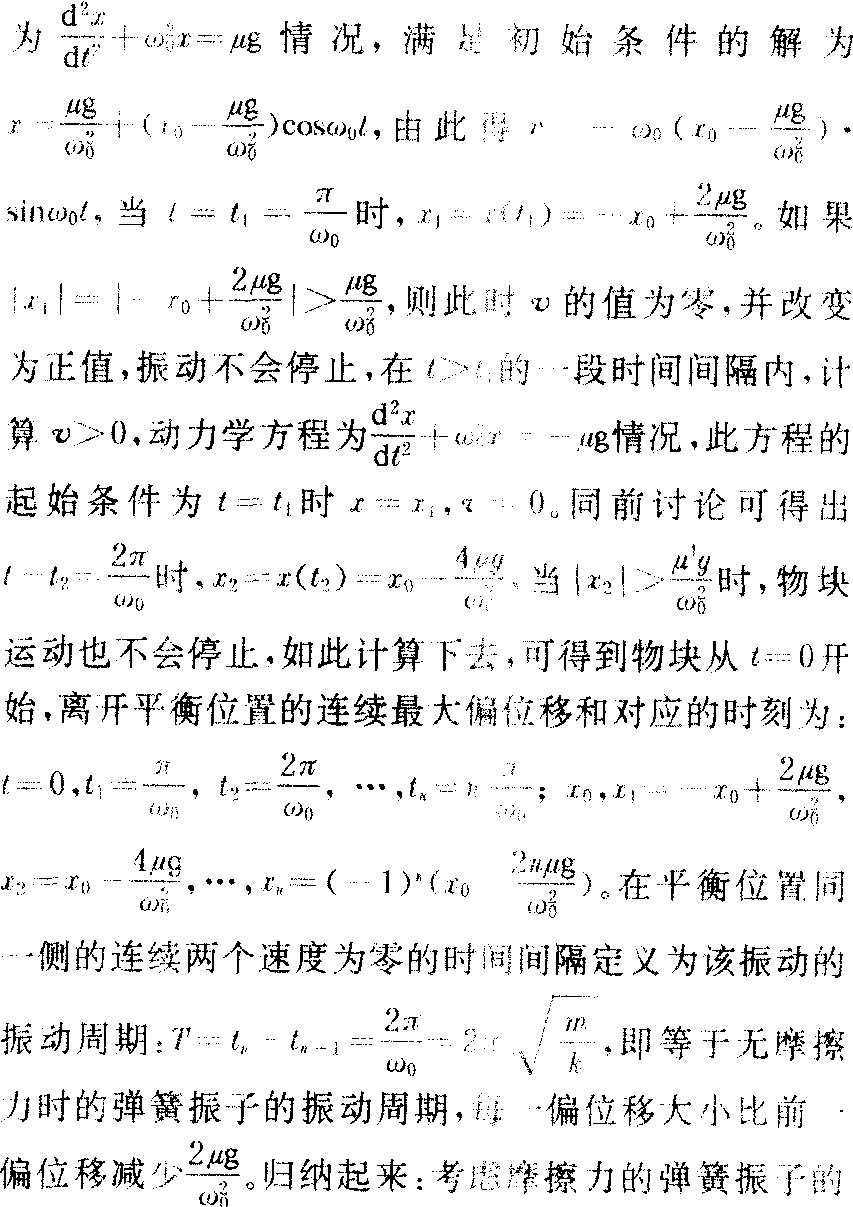 为 $\frac{d^2x}{dt^2}+\omega_0^2x=\mu g$ 情况，满足初始条件的解为
$x=\frac{\mu g}{\omega_0^2}+(x_0-\frac{\mu g}{\omega_0^2})\cos\omega_0t$，由此得 $-\omega_0(x_0-\frac{\mu g}{\omega_0^2})\cdot$
$\sin\omega_0t$，当 $t=t_1=\frac{\pi}{\omega_0}$ 时，$x_1=x(t_1)=-x_0+\frac{2\mu g}{\omega_0^2}$。如果
$|x_1|=|-x_0+\frac{2\mu g}{\omega_0^2}|>\frac{\mu g}{\omega_0^2}$，则此时 $v$ 的值为零，并改变
为正值，振动不会停止，在 $t>t_1$ 的一段时间间隔内，计
算 $v>0$，动力学方程为 $\frac{d^2x}{dt^2}+\omega_0^2x=-\mu g$ 情况，此方程的
起始条件为 $t=t_1$ 时 $x=x_1,v=0$。同前讨论可得出
$t=t_2=\frac{2\pi}{\omega_0}$ 时，$x_2=x(t_2)=x_0-\frac{4\mu g}{\omega_0^2}$、当 $|x_2|>\frac{\mu g}{\omega_0^2}$ 时，物块
运动也不会停止，如此计算下去，可得到物块从 $t=0$ 开
始，离开平衡位置的连续最大偏位移和对应的时刻为：
$t=0,t_1=\frac{\pi}{\omega_0},t_2=\frac{2\pi}{\omega_0},\cdots,t_n=n\frac{\pi}{\omega_0}$；$x_0,x_1=-x_0+\frac{2\mu g}{\omega_0^2}$，
$x_2=x_0-\frac{4\mu g}{\omega_0^2},\cdots,x_n=(-1)^n(x_0-\frac{2n\mu g}{\omega_0^2})$。在平衡位置同
一侧的连续两个速度为零的时间间隔定义为该振动的
振动周期：$T=t_n-t_{n-1}=\frac{2\pi}{\omega_0}=2\pi\sqrt{\frac{m}{k}}$，即等于无摩擦
力时的弹簧振子的振动周期，每一偏位移大小比前一
偏位移减少 $\frac{2\mu g}{\omega_0^2}$。归纳起来：考虑摩擦力的弹簧振子的